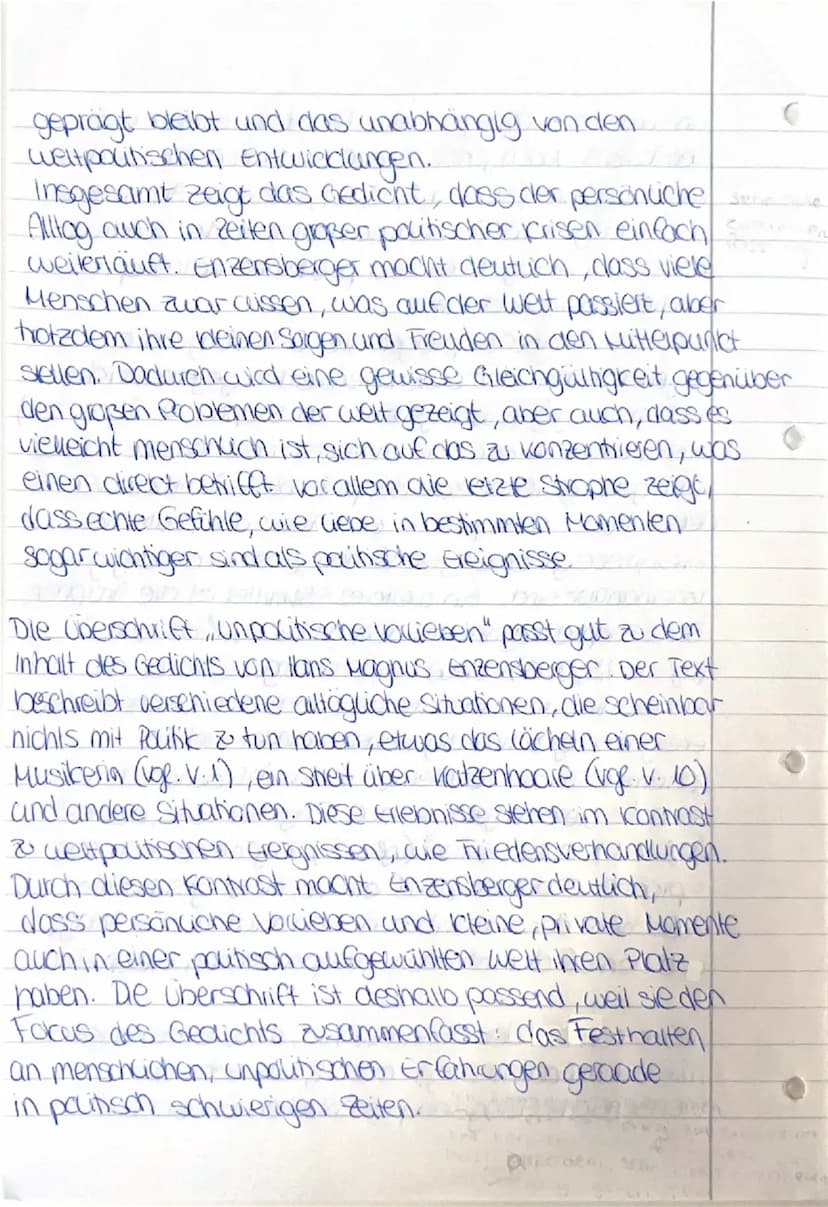 geprägt bleibt und das unabhängig von den
weltpolitischen Entwicklungen.
Insgesamt zeigt das Gedicht, dass der persönliche
Alltag auch in Zeiten großer politischer Krisen einfach
weiterläuft. Enzensberger macht deutlich, dass viele
Menschen zwar wissen, was auf der Welt passiert, aber
trotzdem ihre kleinen Sorgen und Freuden in den Mittelpunkt
stellen. Dadurch wird eine gewisse Gleichgültigkeit gegenüber
den großen Problemen der Welt gezeigt, aber auch, dass es
vielleicht menschlich ist, sich auf das zu konzentrieren, was
einen direct betrifft. Vor allem die letzte Strophe zeigt,
dass echte Gefühle, wie Liebe in bestimmten Momenten
sogar wichtiger sind als politische Ereignisse.
Die Überschrift „Unpolitische Vorlieben" passt gut zu dem
Inhalt des Gedichts von Hans Magnus Enzensberger. Der Text
beschreibt verschiedene alltägliche Situationen, die scheinbar
nichts mit Politik zu tun haben, etwas das Lächeln einer
Musikerin (vgl. V. 1), ein Streit über Katzenhaare (vgl. V. 10)
und andere Situationen. Diese Erlebnisse stehen im Kontrast
zu weltpolitischen Ereignissen, wie Friedensverhandlungen.
Durch diesen Kontrast macht Enzensberger deutlich,
dass persönliche Vorlieben und kleine, private Momente
auch in einer politisch aufgewühlten Welt ihren Platz
haben. Die Überschrift ist deshalb passend, weil sie den
Fokus des Gedichts zusammenfasst: das Festhalten
an menschlichen, unpolitischen Erfahrungen gerade
in politisch schwierigen Zeiten.